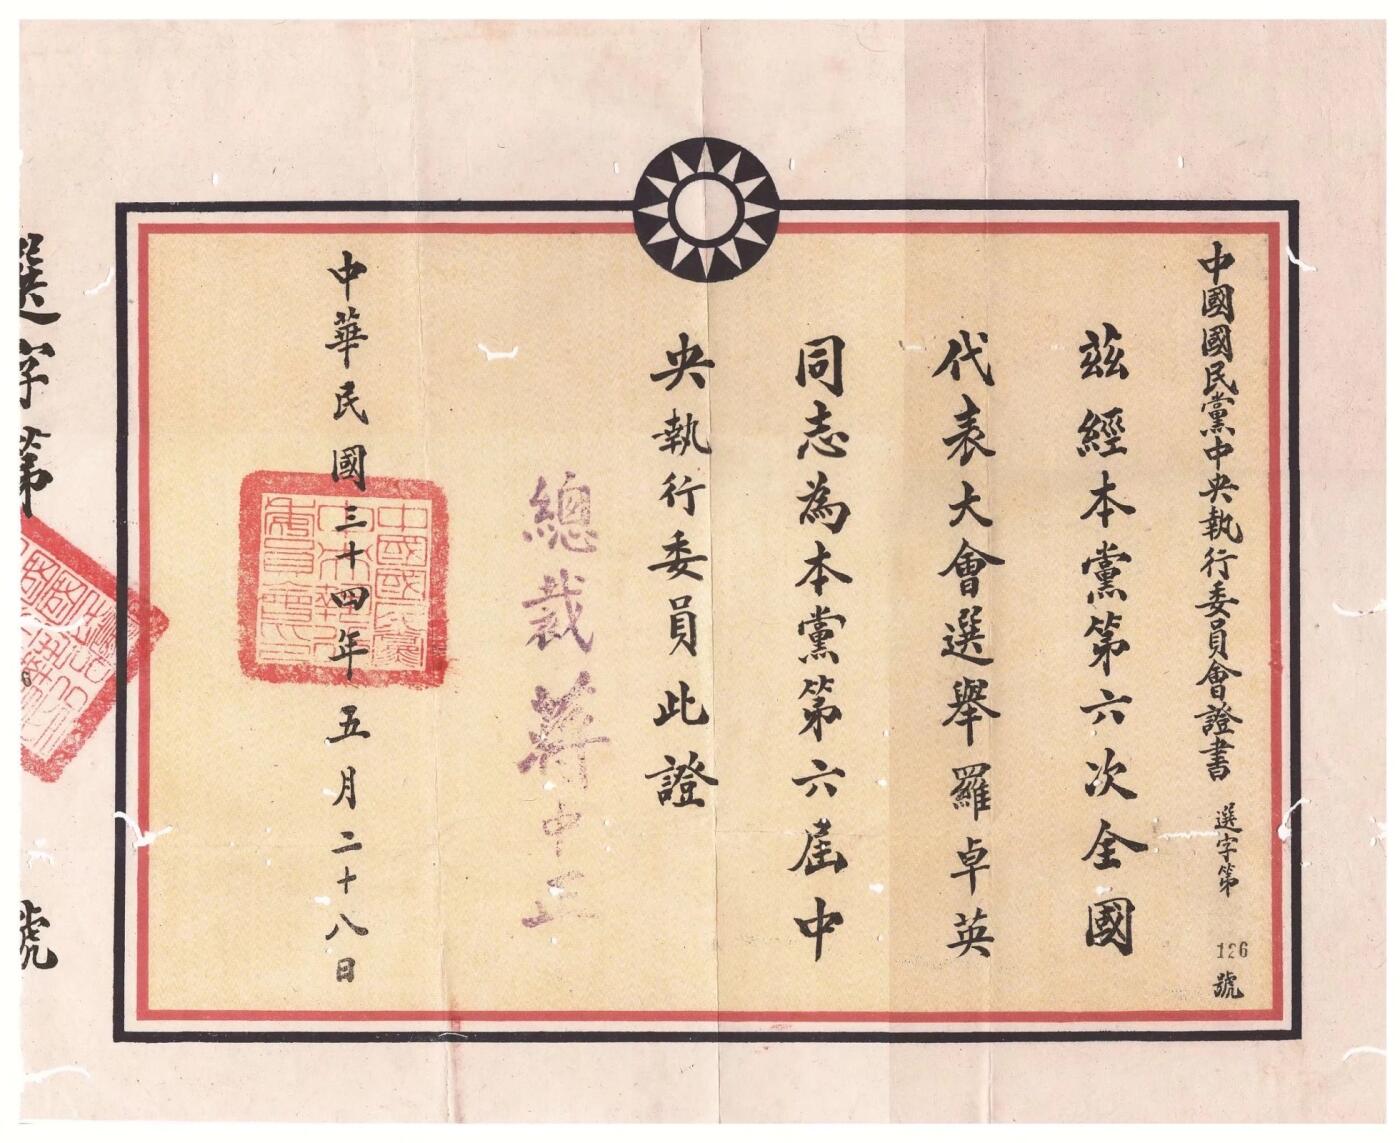 中國國民黨中央執行委員會證書 選字第126號
茲經本黨第六次全國
代表大會選舉羅卓英
同志為本黨第六屆中
央執行委員此證
總裁蔣中正
中華民國三十四年五月二十八日
中國國民黨中央執行委員會印
選字第
號